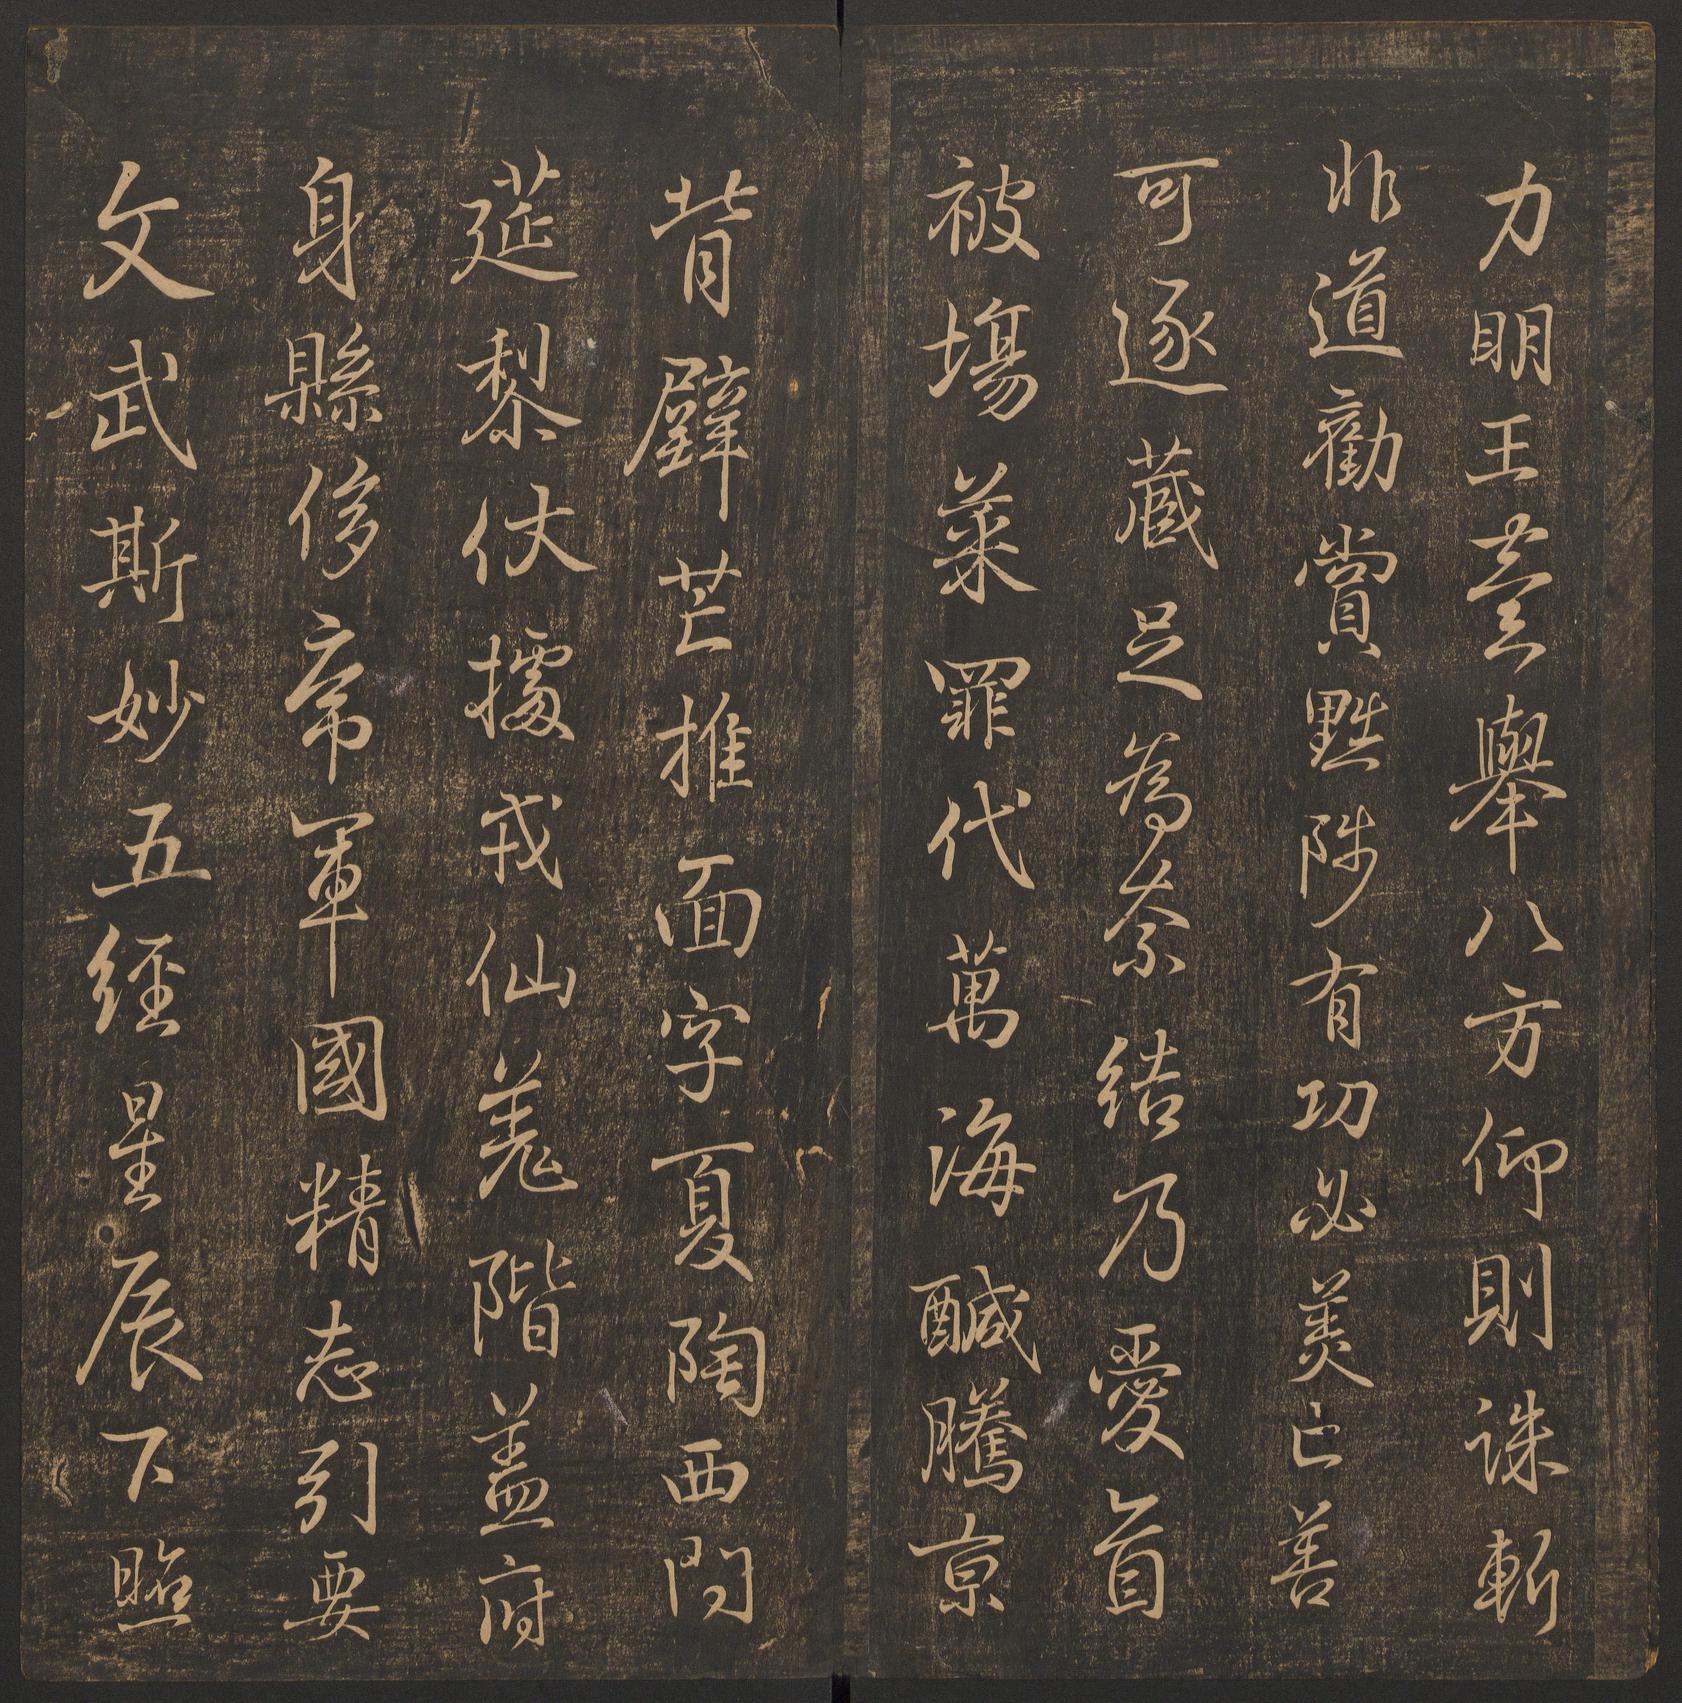 力明王臺舉八方仰則誅斬
非道勸賞黜陟有功必美亡善
可逐藏足為奈結乃愛首
被場菜罪代萬海鹹騰京
背壁芒推面字夏陶西門
莚黎伏據戎仙羌階蓋府
身縣侈帝軍國精志引要
文武斯妙五經星辰下照